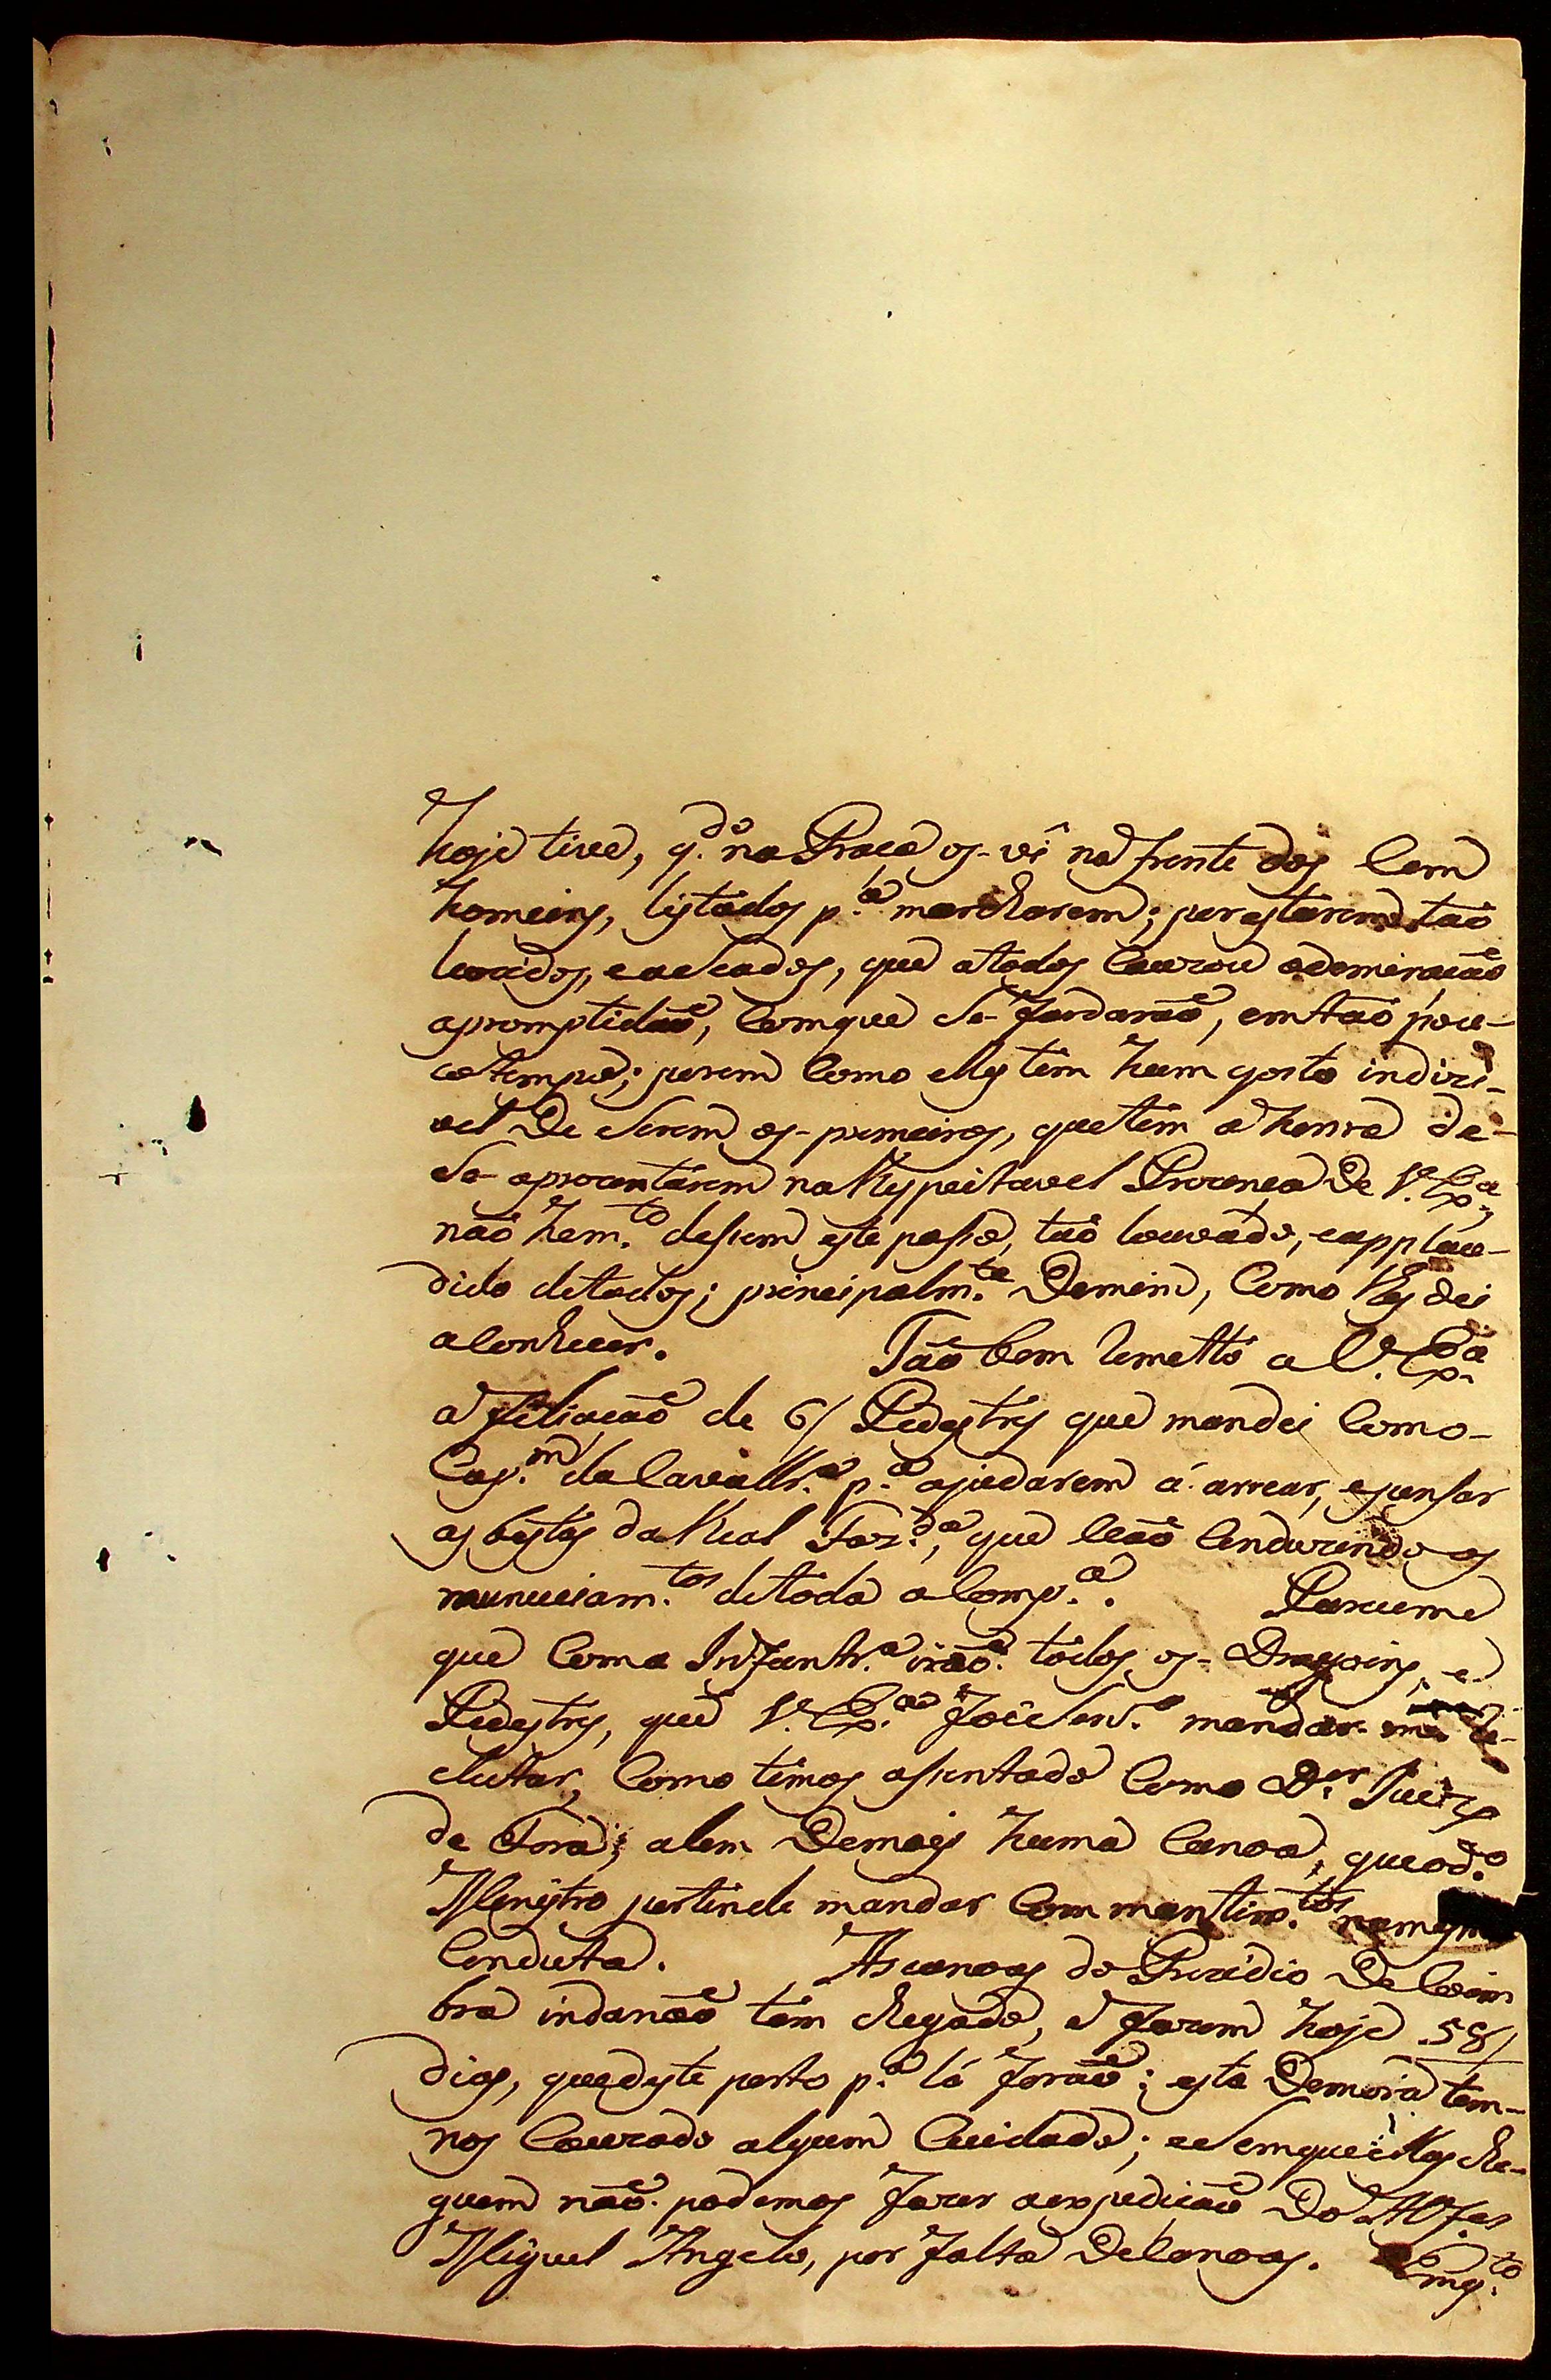 hoje tive, q.do na Praça os-vî na frente dos Cem
homeins, listados p.a marcharem; por estarem taõ
luzidos, e aceados, que atodos Cauzou adomiraçaõ
apromptidaõ, Comque Se-fardaraõ, emtaõ pou-
cotempo; porem Como elles tem hum gosto indizi-
vel De Serem os-primeiros, quetem a honra de-
Se aprezentárem na Respeitavel Prezença De V. Ex.a,
naõ hem.to dessem este passo, taõ louvado, eapplau-
dido detodos; principalm.te Demim, Como lhes dei
aConhecer. Taõ bem Remetto a V. Ex.a
a filiaçaõ de 6/ Pedestres que mandei Como-
Cap.m da Cavallr.a p.a ajudarem á arrear, epensar
as bestas da Real Faz.da, que vaõ Conduzindo os
municiam.tos detoda a Comp.a. Pareceme
que Coma Infantr.a iráõ todos os-Dragoins, e
Pedestres, que V. Ex.a foi Serv.o mandar-me Re-
clutar, Como temos assentado Como D.or Juiz
de Fora; alem Demais huma Canoa, queod.o
Menistro pertende mandar Com mantim.tos na mesma
Conduta. As canoas do Prezidio De Coim
bra indanaõ tem chegado, e fazem hoje 58/
dias, quedeste porto p.a lá foraõ; esta Demora tem-
nos Cauzado algum Cuidado; eSemque ellas che-
guem naõ podemos fazer aexpediçaõ Do Alfes
Miguel Angelo, por falta DeCanoas. Emq.to